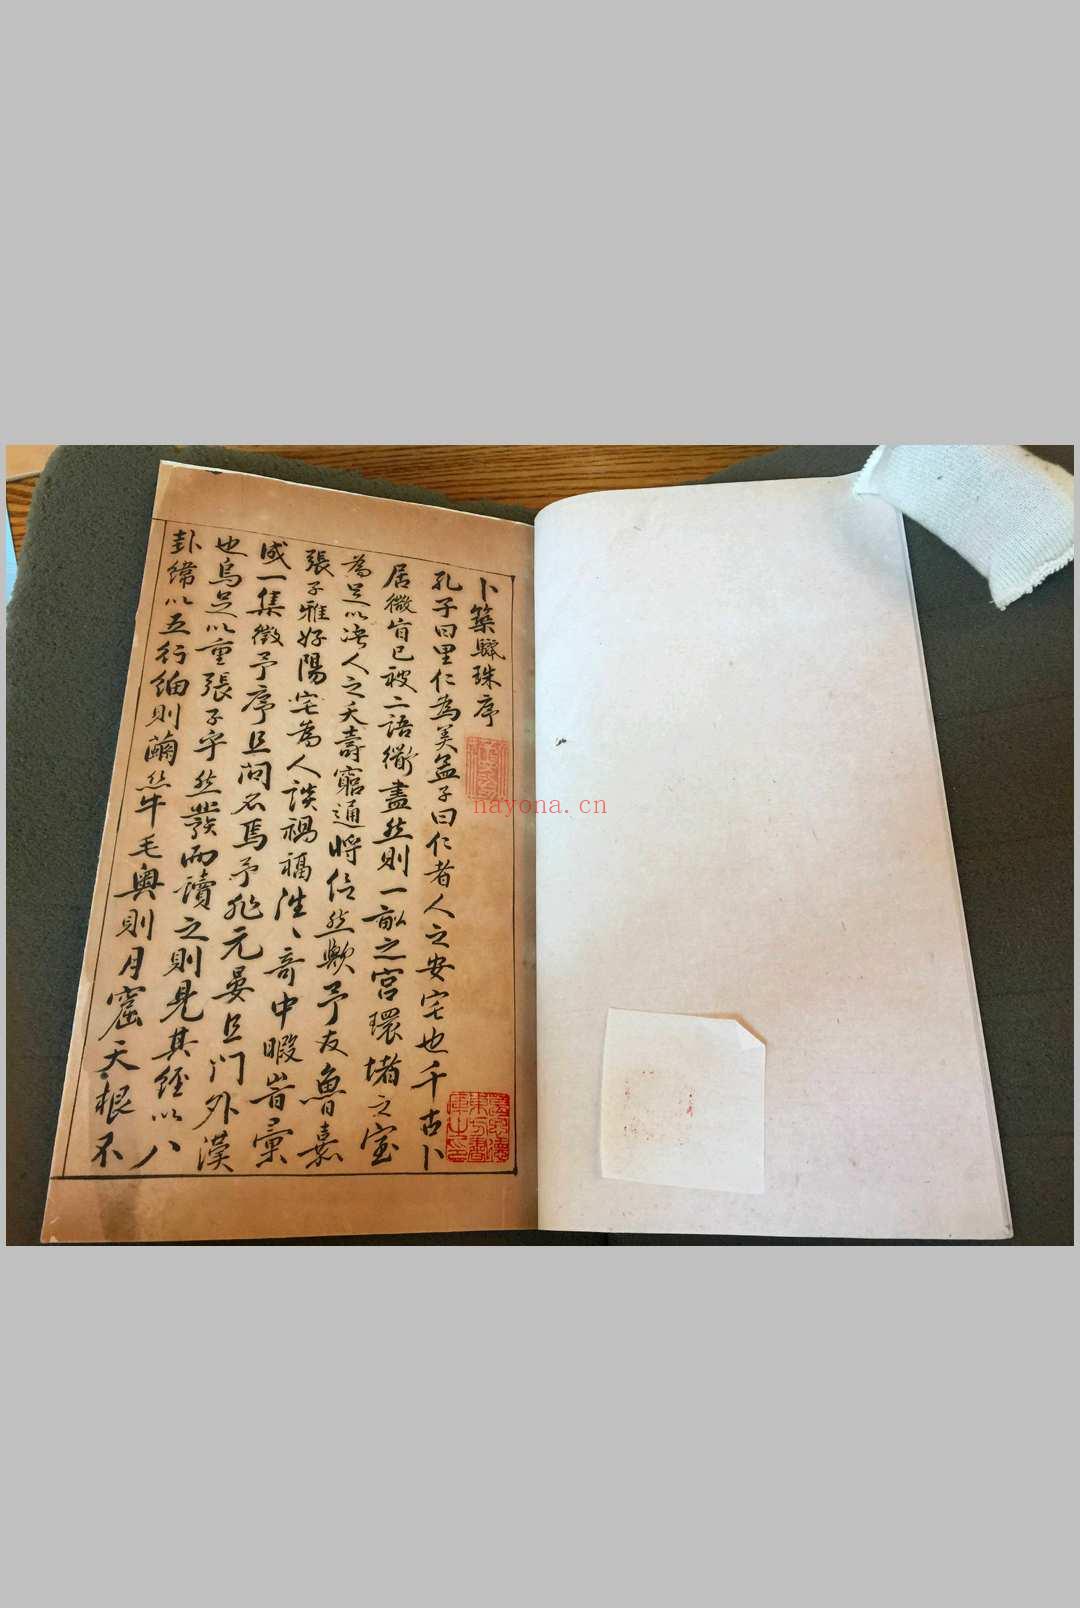 卜築驪珠序
孔子曰里仁為美孟子曰仁者人之安宅也千古卜
居微旨已被二語衢盡然則一畝之宮環堵之室
為足以决人之夭壽窮通將信然歟予友魯嘉
張子雅好陽宅為人談禍福洋洋奇中暇嵵彙
成一集徵予序且問名焉予非元晏且門外漢
也烏足以重張子乎然嘗而讀之則見其經以八
卦緯以五行細則繭絲牛毛奧則月窟天根不
東方書
庫之印
nayona.cn